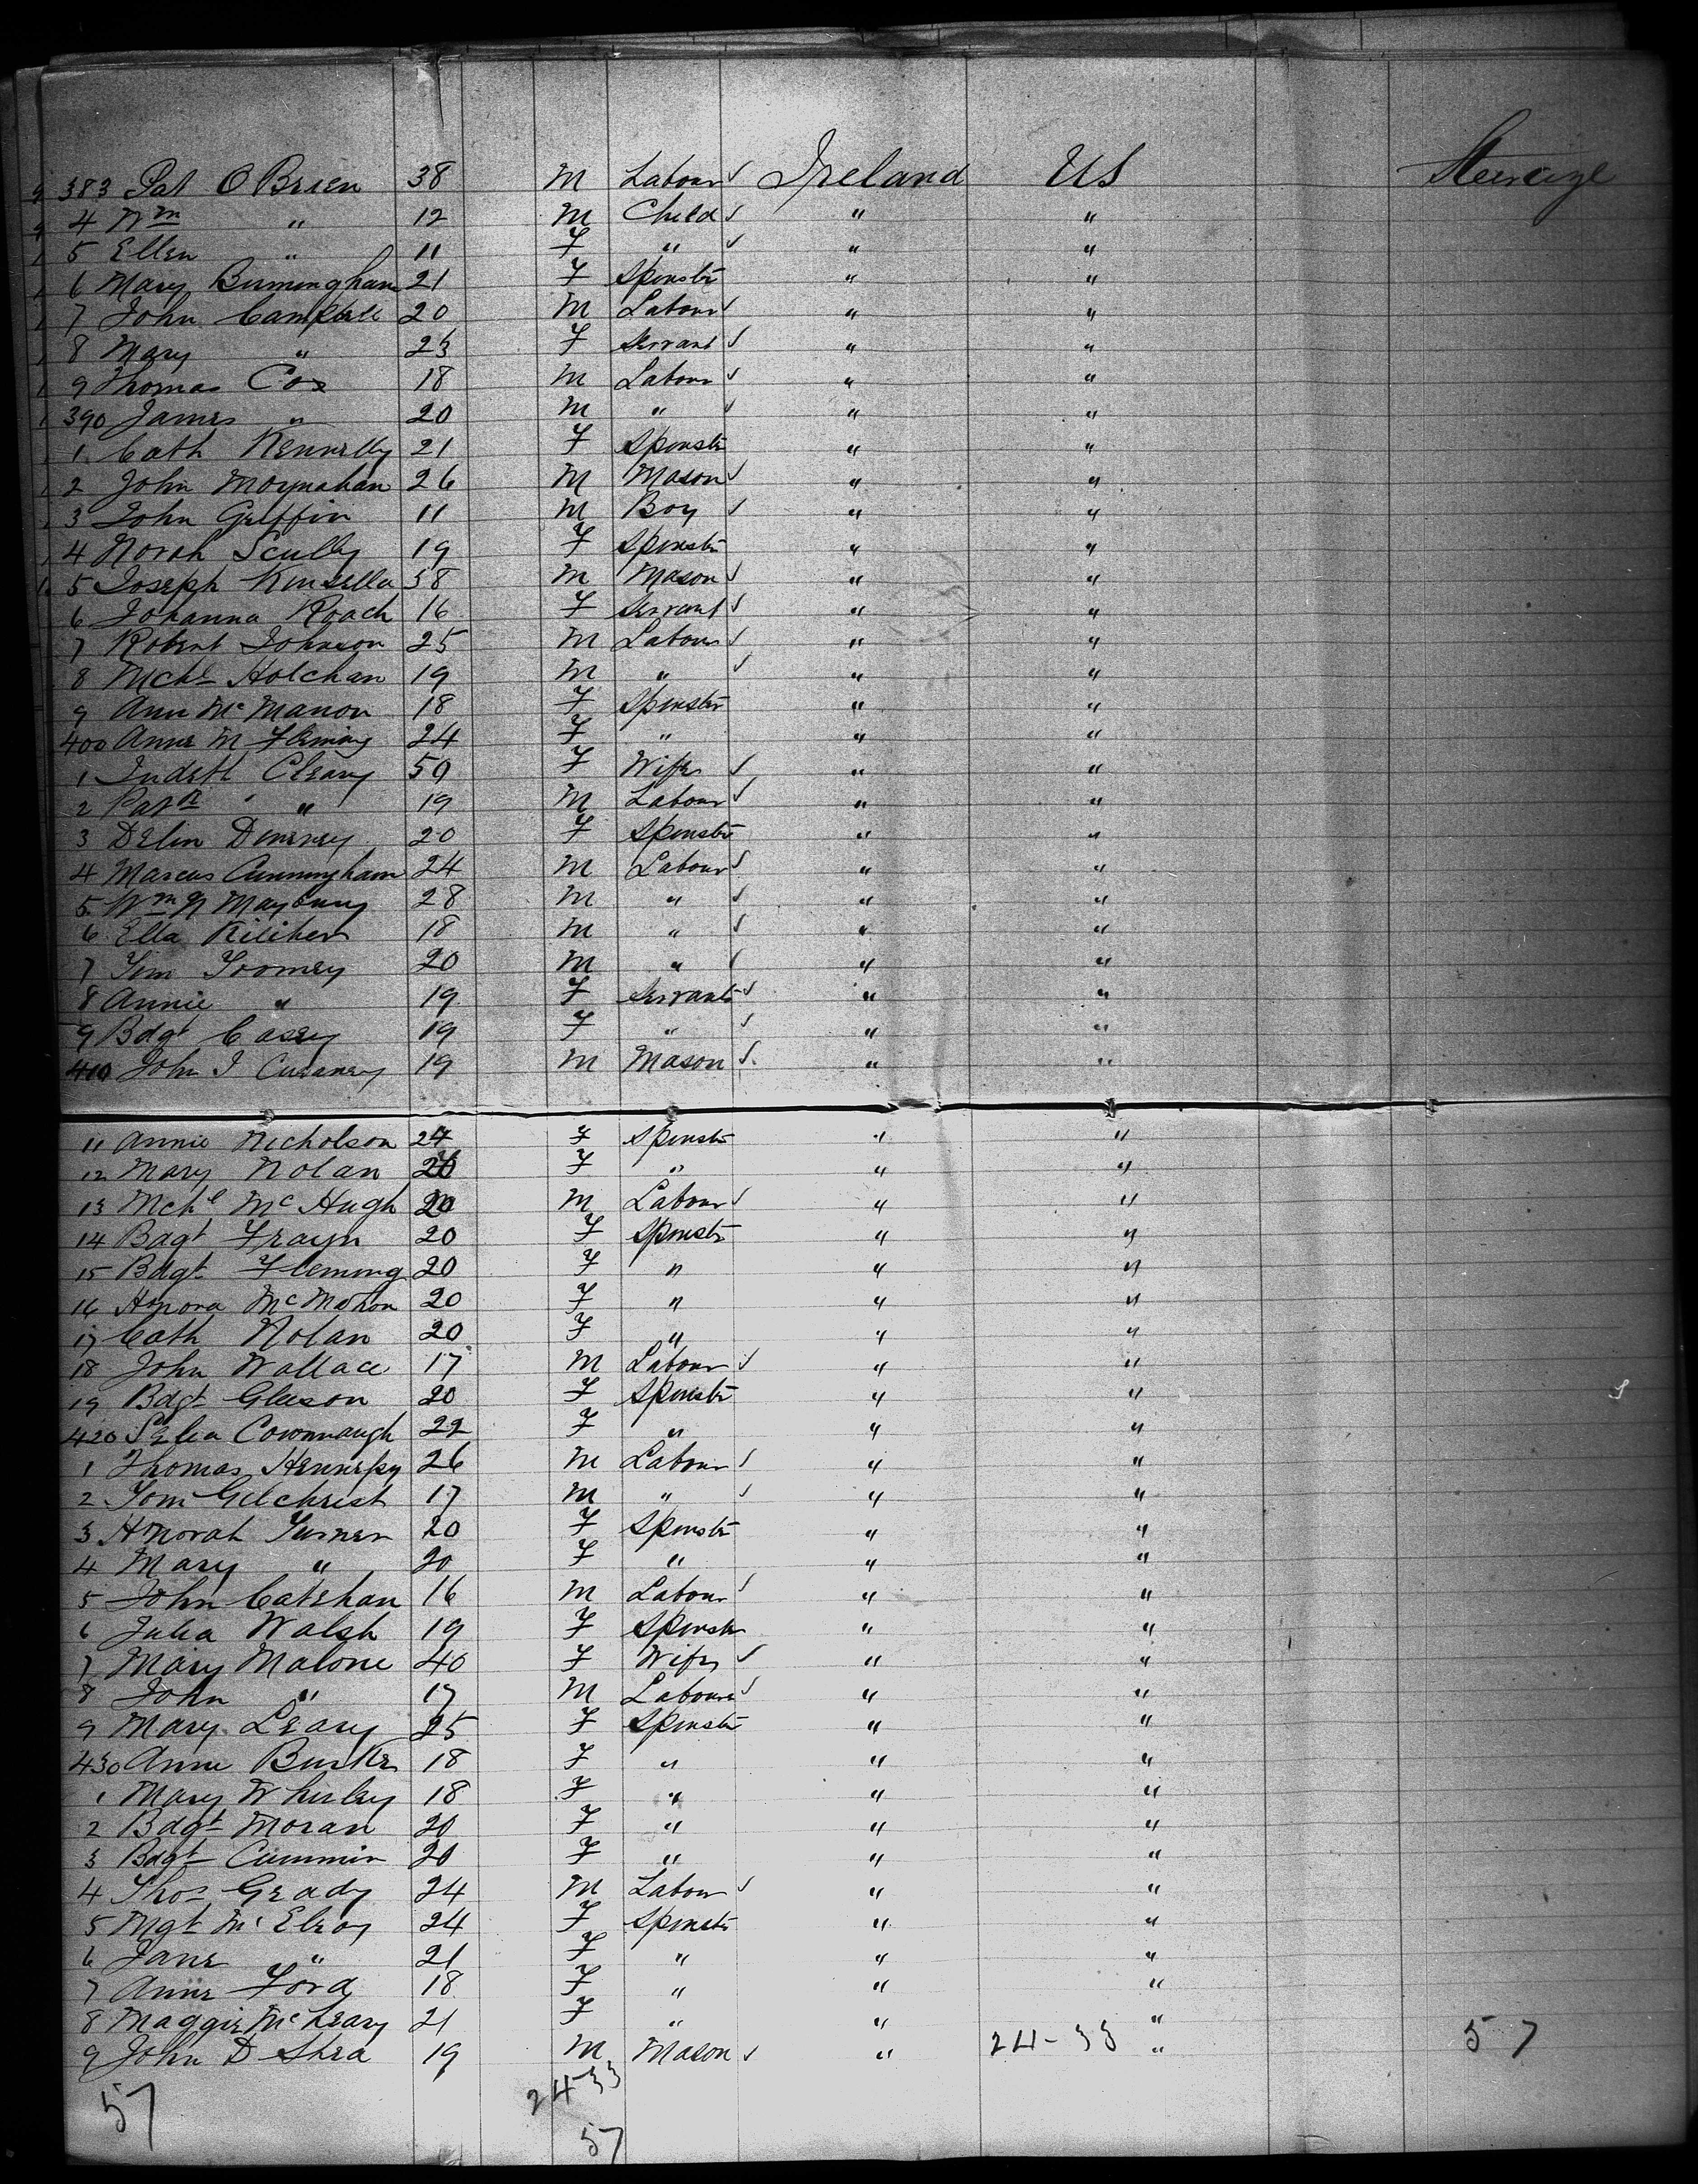 383 Pat O Brien 38 M Labour ✓ Ireland US Steerage
4 Wm " 12 M Child ✓ " "
5 Ellen " 11 F " ✓ " "
6 Mary Burmingham 21 F Spinstr " "
7 John Campbell 20 M Labour ✓ " "
8 Mary " 23 F Servant ✓ " "
9 Thomas Cox 18 M Labour ✓ " "
390 James " 20 M " ✓ " "
1 Cath Kennelly 21 F Spinstr " "
2 John Moynahan 26 M Mason ✓ " "
3 John Griffin 11 M Boy ✓ " "
4 Norah Scully 19 F Spinstr " "
5 Joseph Kinsella 38 M Mason ✓ " "
6 Johanna Roach 16 F Servant ✓ " "
7 Robert Johnson 25 M Labour ✓ " "
8 Mchl Holchan 19 M " ✓ " "
9 Ann McManon 18 F Spinstr " "
400 Anne M Fleming 24 F " " "
1 Judeth Cleary 50 F Wife ✓ " "
2 Patk " 19 M Labour ✓ " "
3 Delin 20 F Spinstr " "
4 Marcus Cunningham 24 M Labour ✓ " "
5 Wm N Maybury 28 M " ✓ " "
6 Ella Kiliher 18 M " ✓ " "
7 Tim Toomey 20 M " ✓ " "
8 Annie " 19 F Servants ✓ " "
9 Bdgt Casey 19 F " ✓ " "
410 John J 19 M Mason ✓ " "
11 Annie Nicholson 24 F Spinstr " "
12 Mary Nolan 20 F " " "
13 Mchl McHugh 20 M Labour ✓ " "
14 Bdgt Frayn 20 F Spinstr " "
15 Bdgt Fleming 20 F " " "
16 Honora McMahon 20 F " " "
17 Cath Nolan 20 F " " "
18 John Wallace 17 M Labour ✓ " "
19 Bdgt Gleeson 20 F Spinstr " "
420 Selia 22 F " " "
1 Thomas Hennessy 26 M Labour ✓ " "
2 Tom Gilchrist 17 M " ✓ " "
3 Honorah Turner 20 F Spinstr " "
4 Mary " 20 F " " "
5 John Calahan 16 M Labour ✓ " "
6 Julia Walsh 19 F Spinstr " "
7 Mary Malone 40 F Wife ✓ " "
8 John " 17 M Labour ✓ " "
9 Mary Leary 25 F Spinstr " "
430 Anne Burke 18 F " " "
1 Mary Whirley 18 F " " "
2 Bdgt Moran 20 F " " "
3 Bdgt Cummin 20 F " " "
4 Thos Grady 24 M Labour ✓ " "
5 Mgt McElroy 24 F Spinstr " "
6 Jane " 21 F " " "
7 Anne Ford 18 F " " "
8 Maggie McLeary 21 F " " "
9 John D Shea 19 M Mason ✓ " 24-33 " 57
57 24 33
57